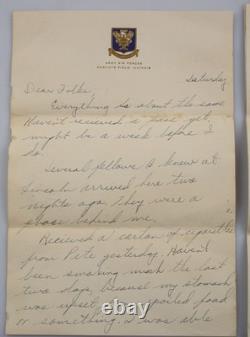 ARMY AIR FORCES
Saturday
Dear Folks,
Everything is about the same
Haven't received a here yet,
might be a week before I
do.
Several fellows I knew at
Lincoln arrived here two
nights ago. They were a
phase behind me.
Received a carton of cigarettes
from Pete yesterday. Haven't
been smoking much the last
two days, because my stomach
was upset, from spoiled food
or something. I was able
ebay